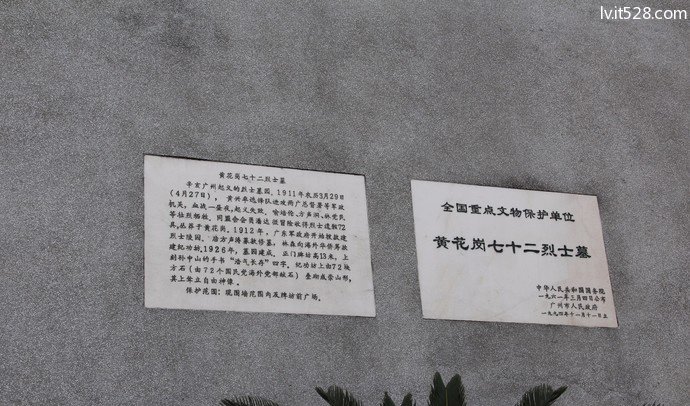 lvit528.com
黄花岗七十二烈士墓
辛亥广州起义的烈士墓园。1911年农历3月29日
(4月27日),黄兴率选锋队进攻两广总督署等军政
机关,血战一昼夜,起义失败。喻培伦、方声洞、林觉民
等壮烈牺牲。同盟会会员潘达微冒险收得烈士遗骸72
具,丛葬于黄花岗。1912年,广东军政府开始拨款建
烈士陵园。后方声涛募款修墓,林森向海外华侨募款
建纪功坊。1926年,墓园建成。正门牌坊高13米,上
刻孙中山的手书“浩气长存”四字。纪功坊上由72块
方石(由72个国民党海外党部献石)叠砌成崇山形,
其上耸立自由神像。
保护范围:现围墙范围内及牌坊前广场。
全国重点文物保护单位
黄花岗七十二烈士墓
中华人民共和国国务院
一九六一年三月四日公布
广州市人民政府
一九九四年十一月十一日立